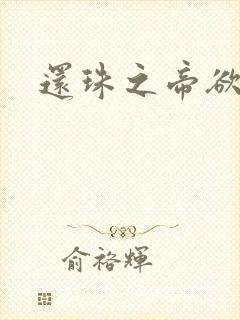 還珠之帝欲
俞裕輝